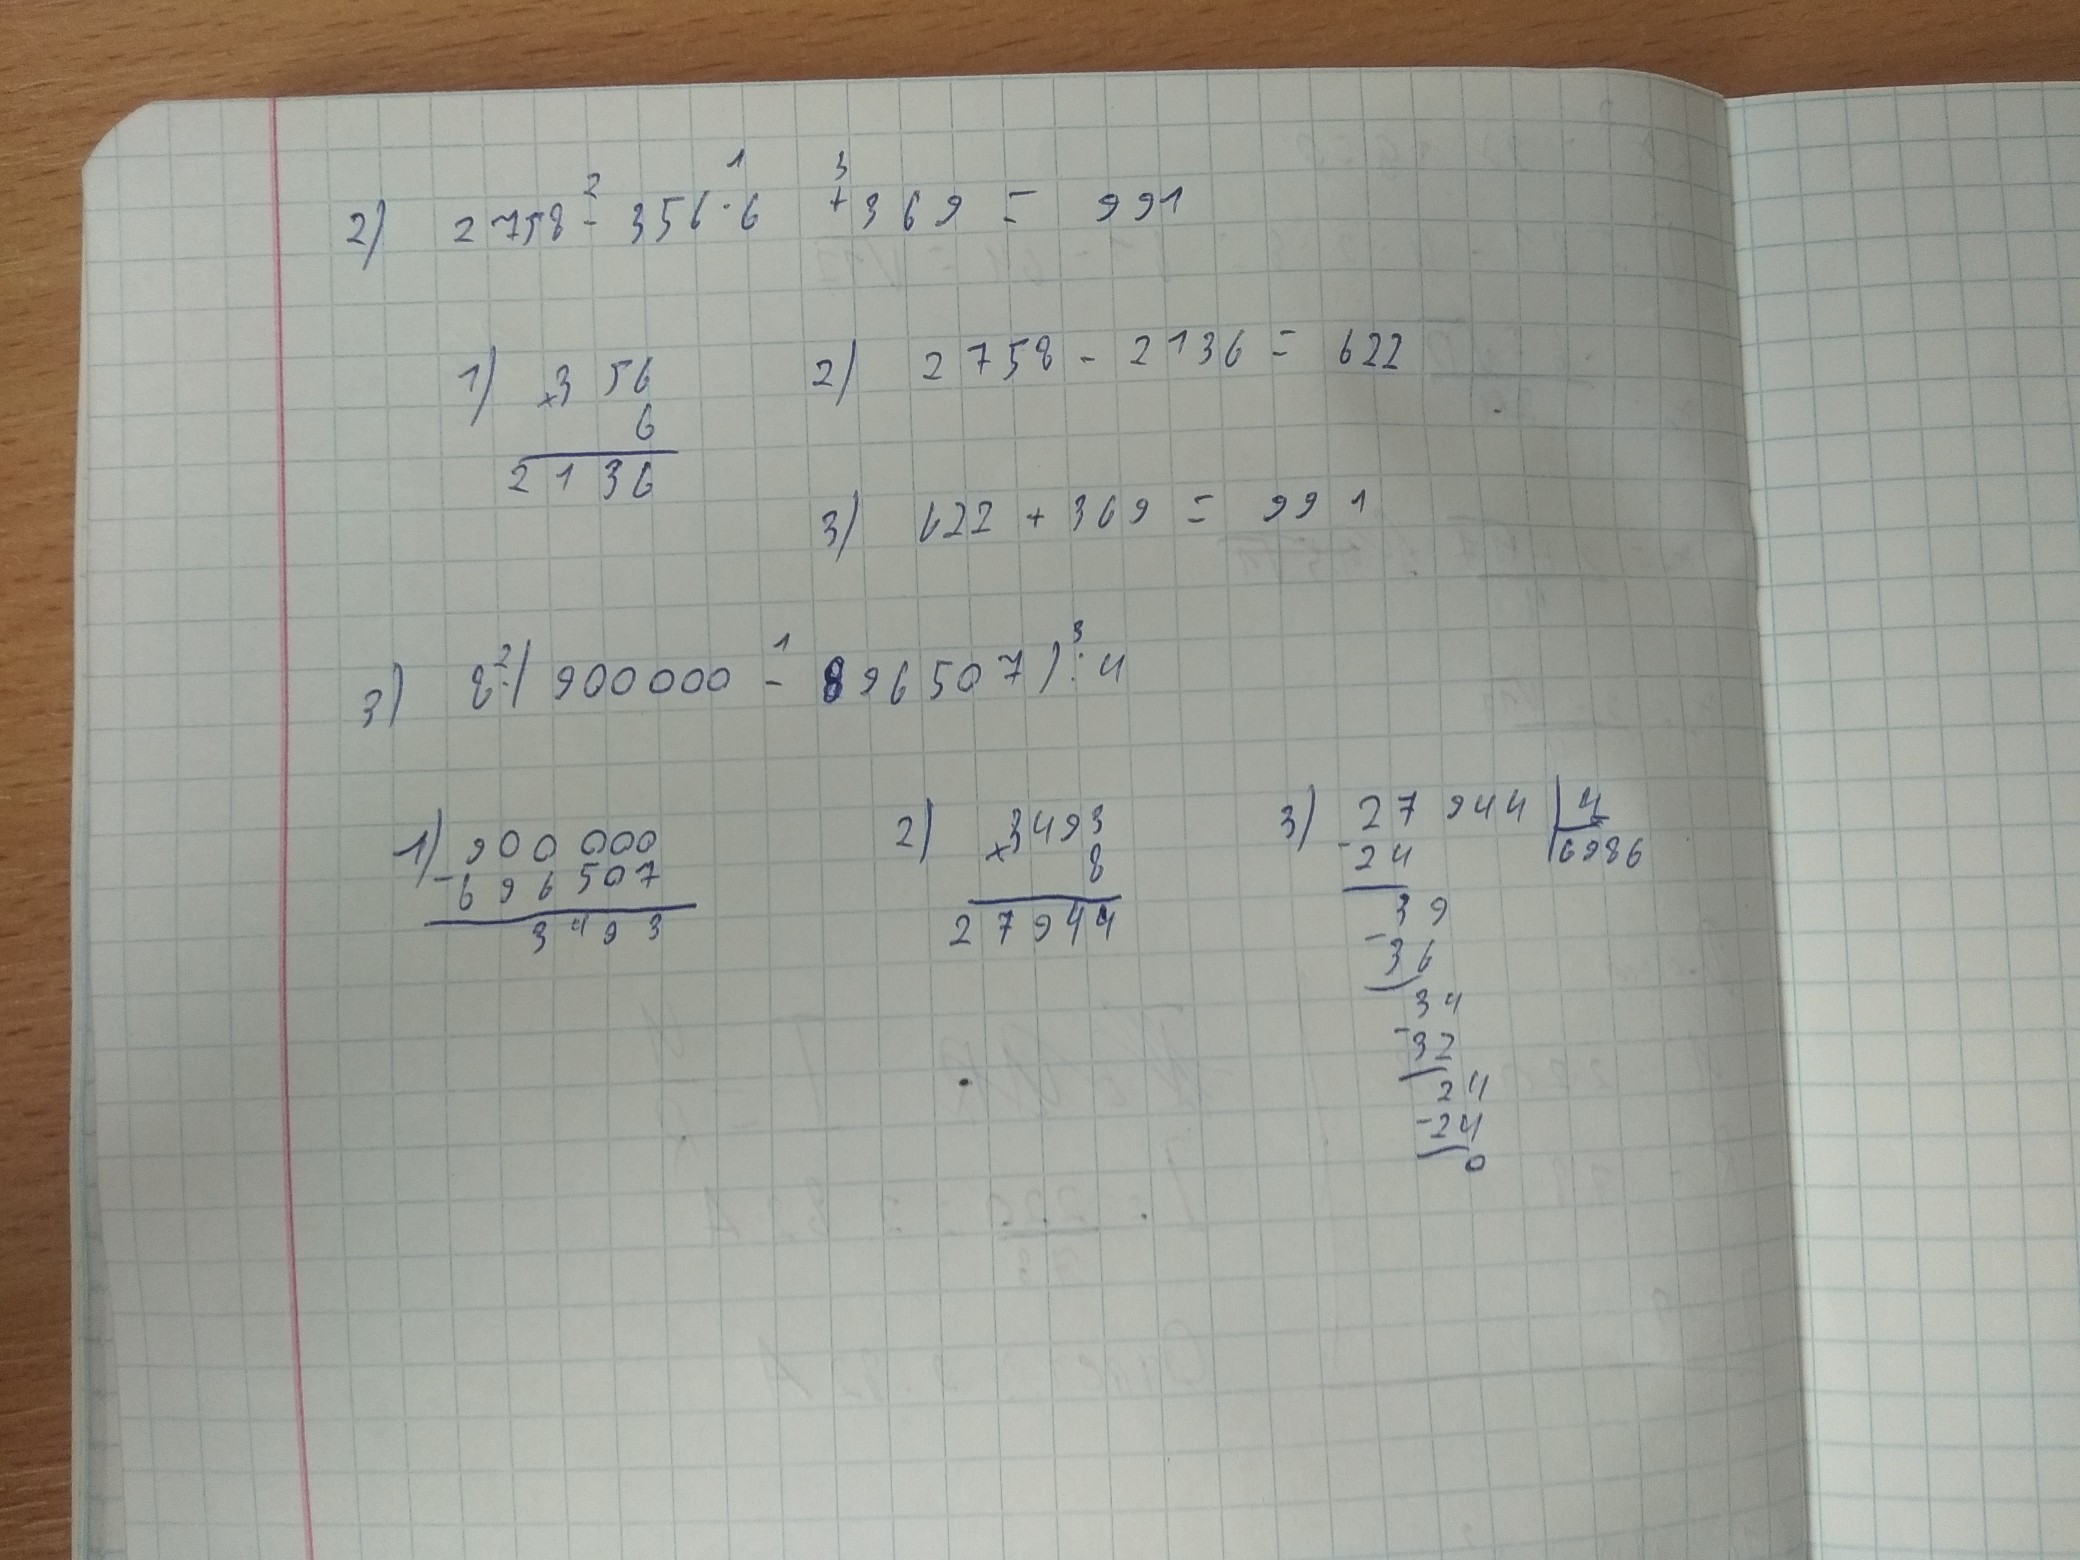 2) 2758 - 356 · 6 + 369 = 991
2 1 3
1) × 356
6
2136
2) 2758 - 2136 = 622
3) 622 + 369 = 991
3) 8 · ( 900000 - 896507 ) : 4
2 1 3
1) 900 000
- 696507
3493
2) × 3493
8
27944
3) 27944 | 4
- 24 | 6986
39
- 36
34
- 32
24
- 24
0